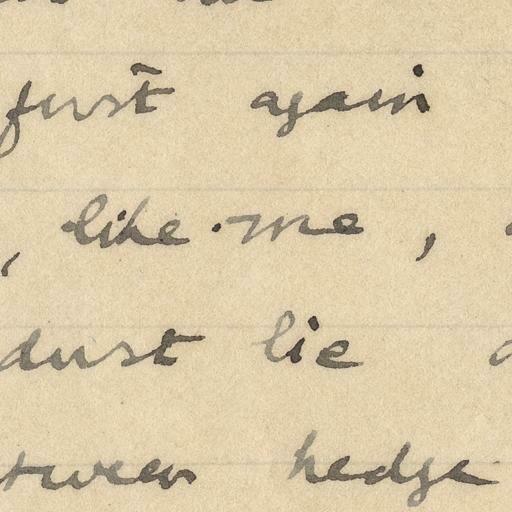 first again
, like me ,
dust lie
tween hedge